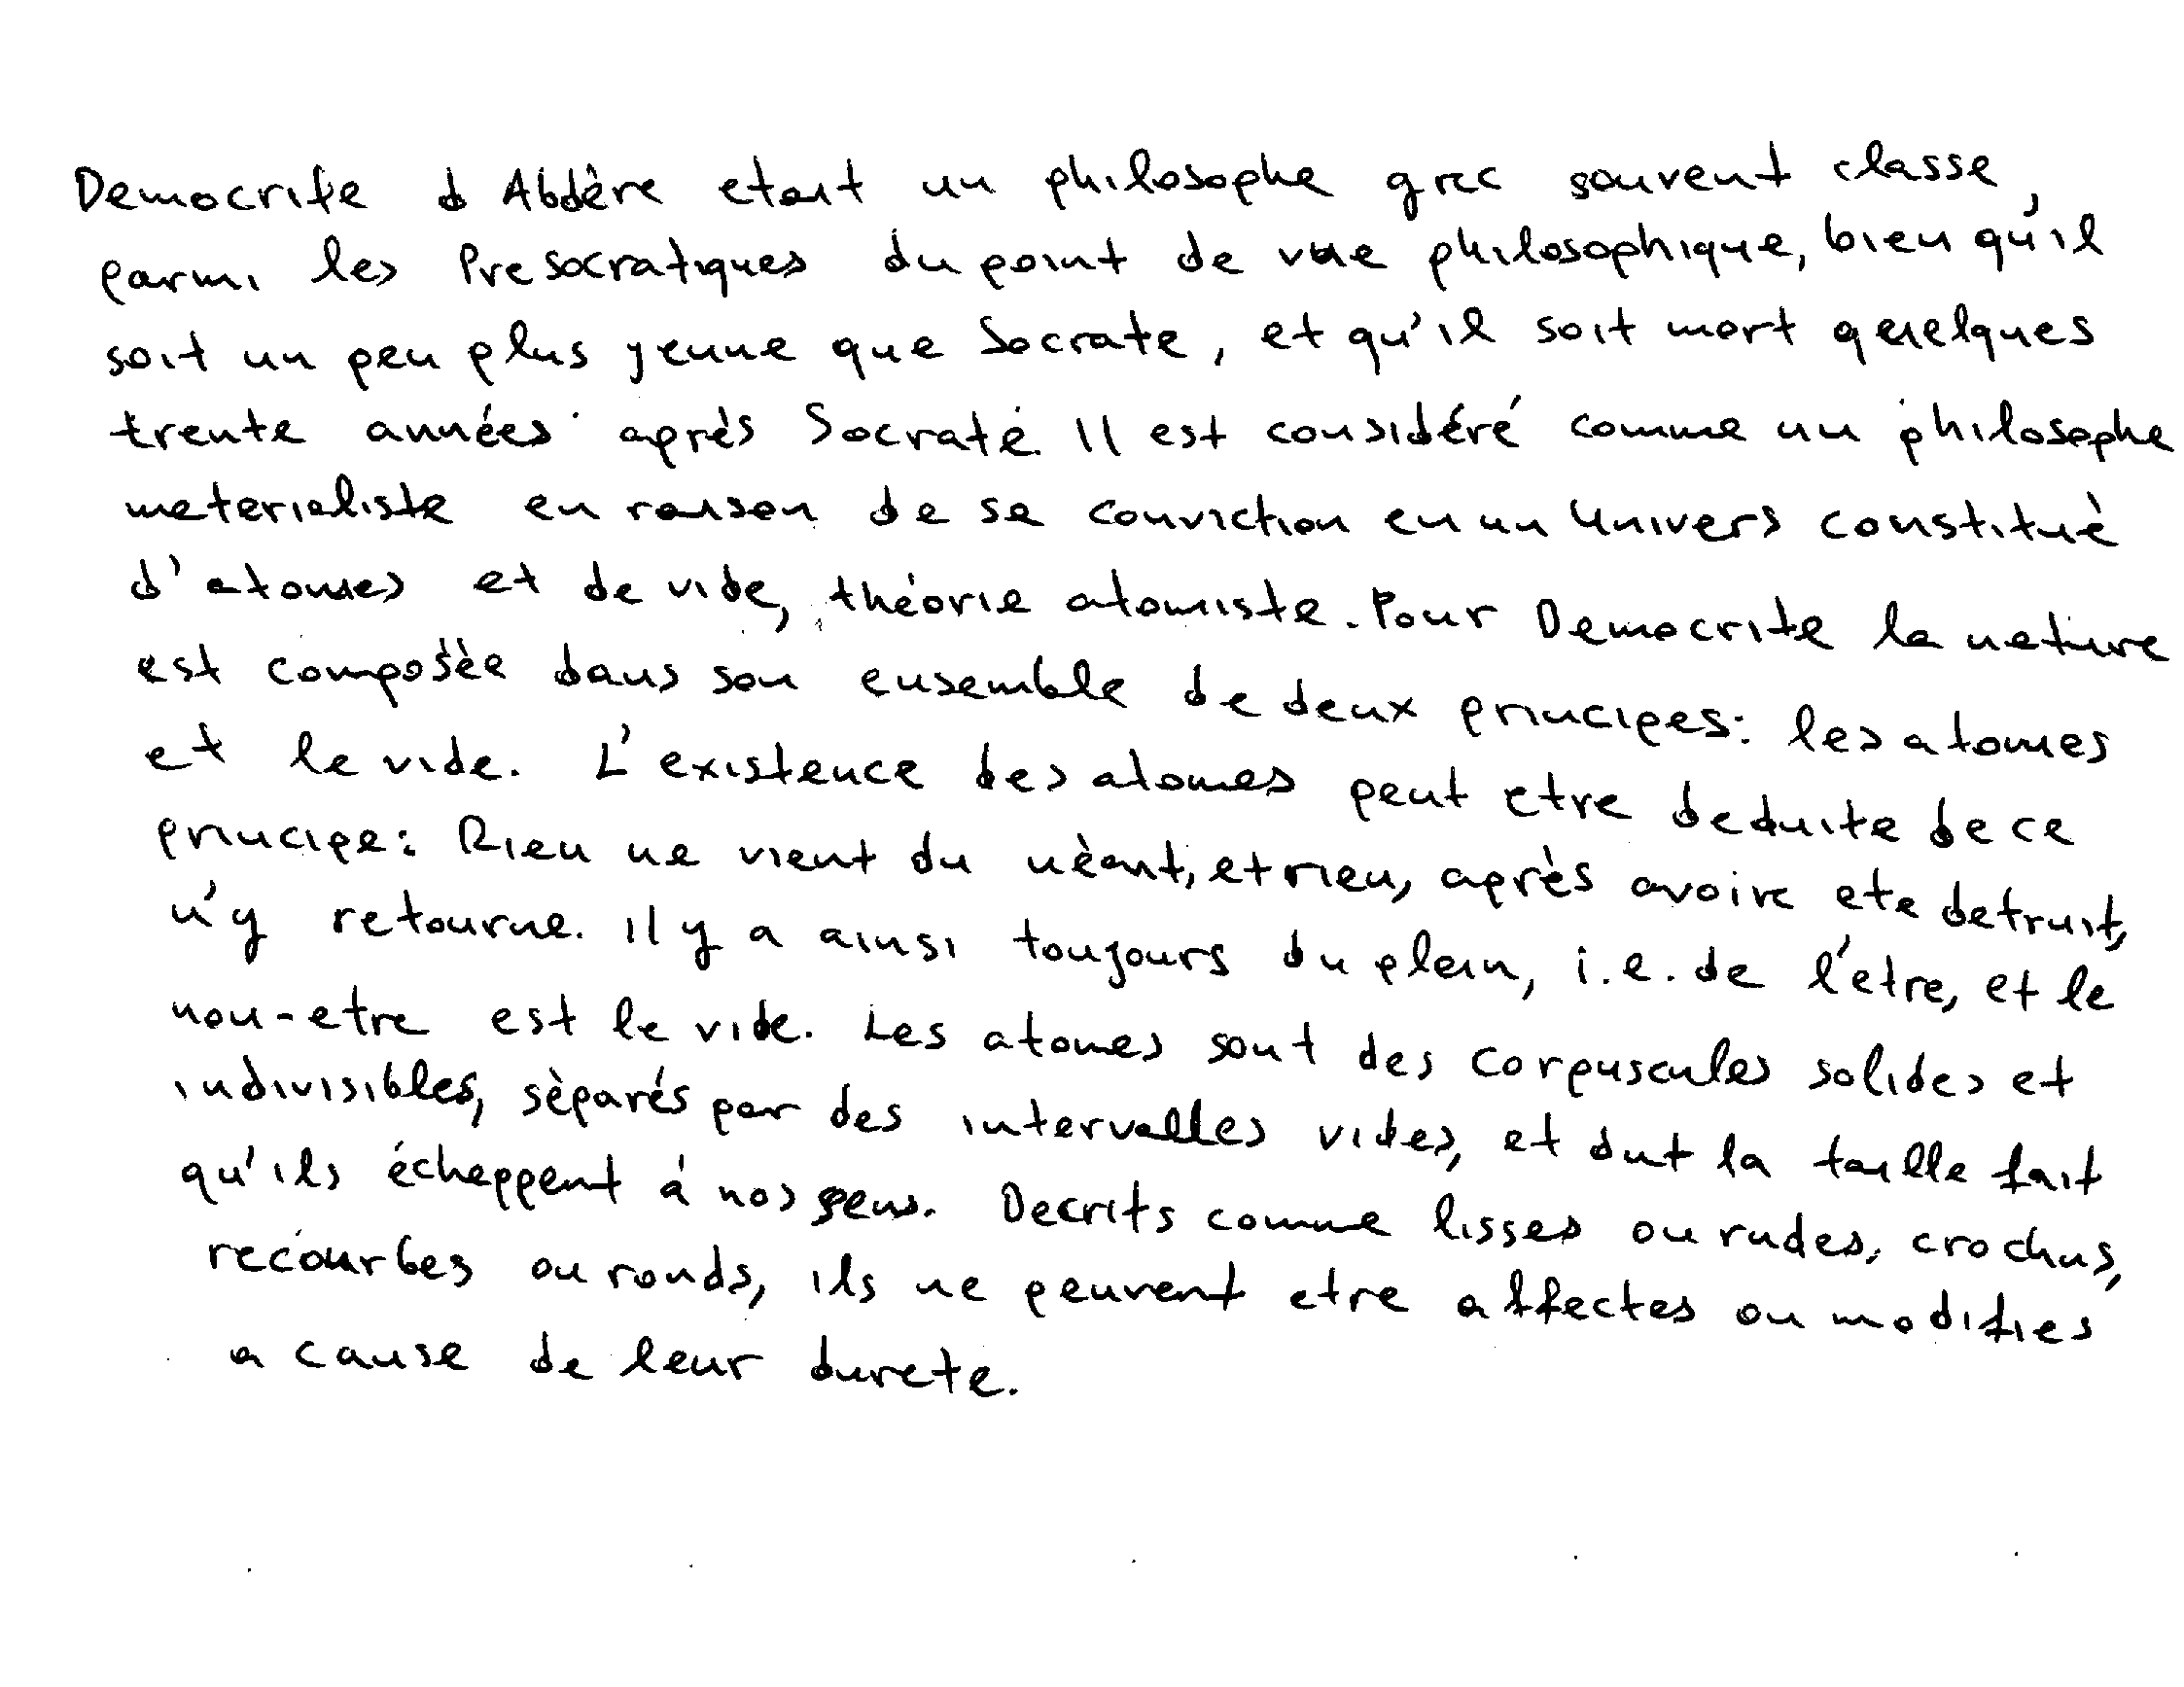 Democrite d Abdère etait un philosophe grec souvent classe
parmi les Presocratiques du point de vue philosophique, bien qu'il
soit un peu plus jeune que Socrate, et qu'il soit mort quelques
trente années après Socrate. Il est considéré comme un philosophe
materialiste en raison de sa conviction en un Univers constituè
d'atomes et de vide, théorie atomiste. Pour Democrite la nature
est composèe dans son ensemble de deux principes: les atomes
et le vide. L'existence des atomes peut etre deduite de ce
principe: Rien ne vient du nèant, et rien, après avoir ete detruit,
n'y retourne. Il y a ainsi toujours du plein, i.e. de l'etre, et le
non-etre est le vide. Les atomes sont des corpuscules solides et
indivisibles, sèparés par des intervalles vides, et dut la taille fait
qu'ils échappent à nos sens. Decrits comme lisses ou rudes, crochus,
recourbes ou ronds, ils ne peuvent etre affectes ou modifies
a cause de leur durete.